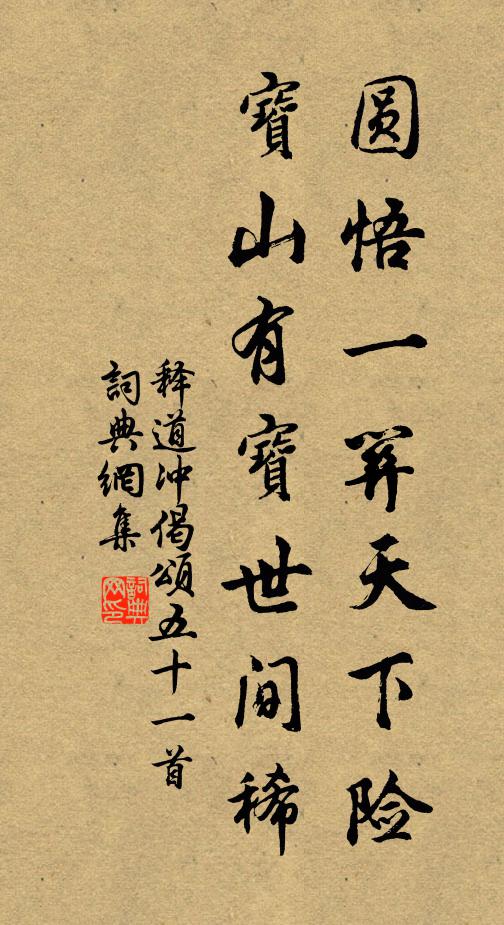 圆悟一笄天下险
寶山有寶世间稀
释道冲偈頌五十一首
詞典網集
詞典
网印